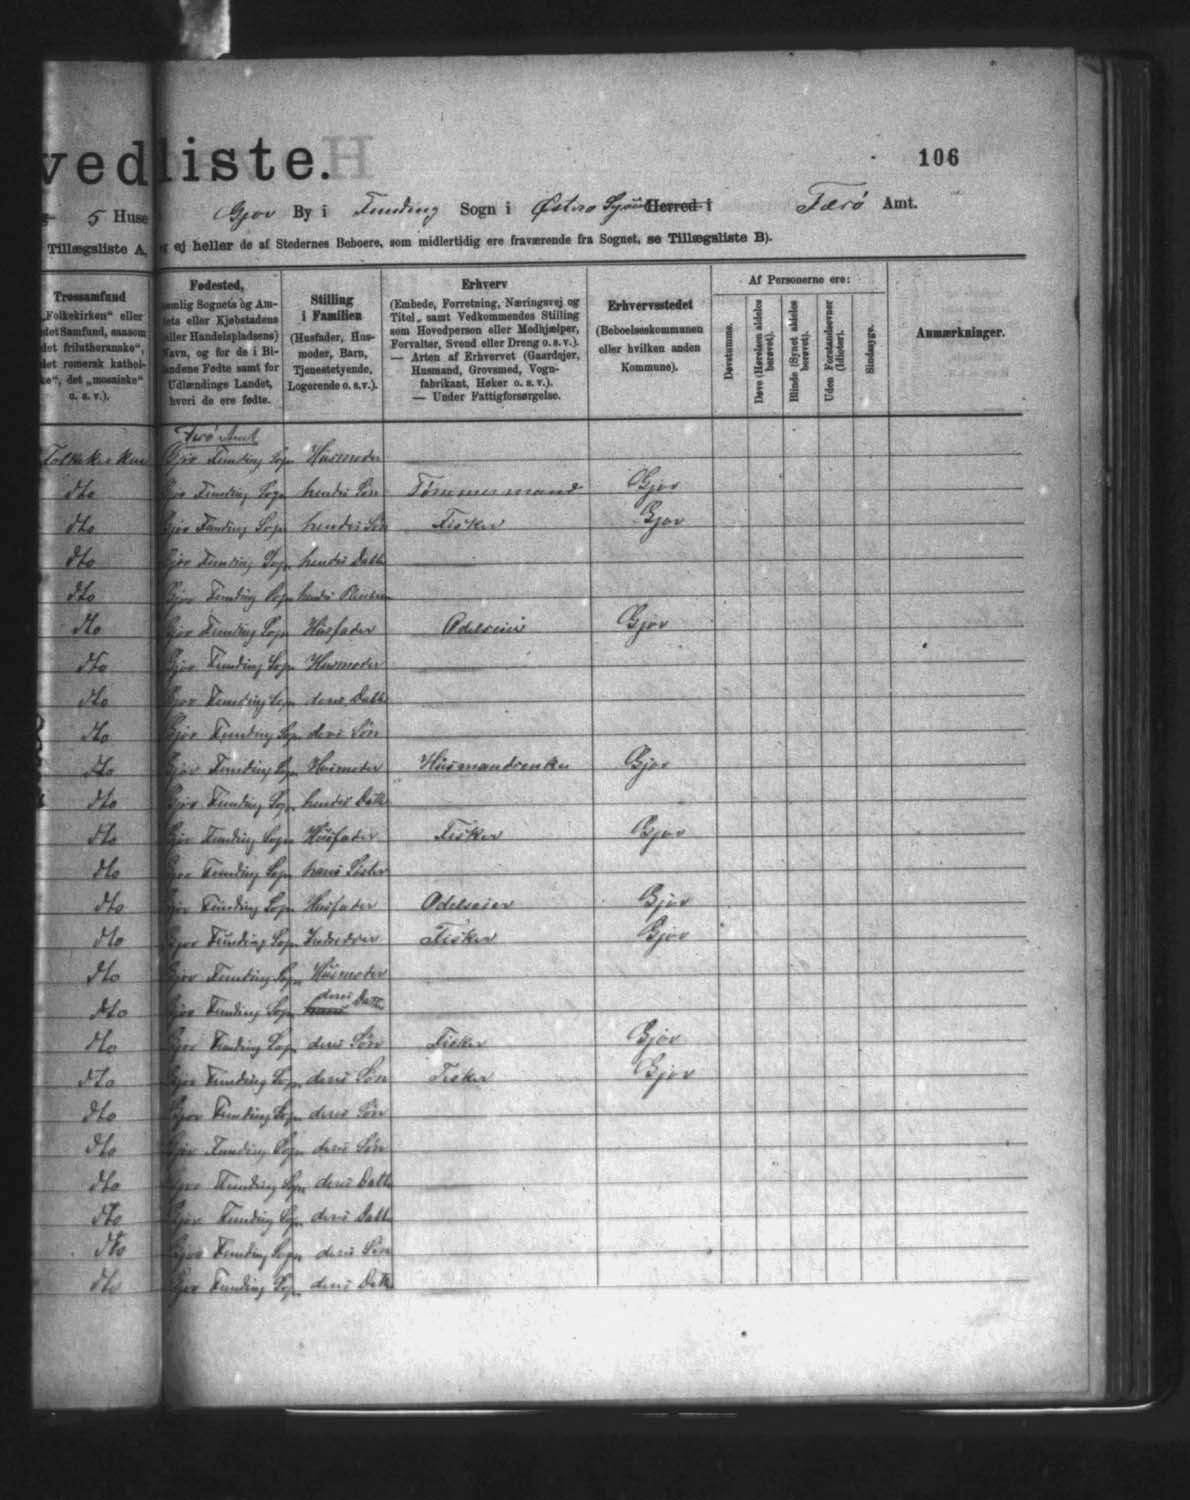 vedliste.
106
5 Huse Gjov By i Funding Sogn i Østerø Syssel Herred i Færø Amt.
Tillægsliste A, ej heller de af Stedernes Beboere, som midlertidig ere fraværende fra Sognet, se Tillægsliste B).
Trossamfund
„Folkekirken“ eller
det Samfund, saasom
det frilutheranske“,
det romersk kathol-
ke“, det „mosaiske“
o. s. v.).
Fødested,
nemlig Sognets og Am-
tets eller Kjøbstadens
eller Handelspladsens)
Navn, og for de i Bi-
landene Fødte samt for
Udlændinge Landet,
hvori de ere fødte.
Stilling
i Familien
(Husfader, Hus-
moder, Barn,
Tjenestetyende,
Logerende o. s. v.).
Erhverv
(Embede, Forretning, Næringsvej og
Titel, samt Vedkommendes Stilling
som Hovedperson eller Medhjælper,
Forvalter, Svend eller Dreng o. s. v.).
— Arten af Erhvervet (Gaardejer,
Husmand, Grovsmed, Vogn-
fabrikant, Høker o. s. v.).
— Under Fattigforsørgelse.
Erhvervsstedet
(Beboelseskommunen
eller hvilken anden
Kommune).
Af Personerne ere:
Døvstumme.
Døve (Hørelsen aldeles
berøvet).
Blinde (Synet aldeles
berøvet).
Uden Forstandsevner
(Idioter).
Sindssyge.
Anmærkninger.
Færø Amt
Folkekirken Gjov Funding Sogn Husmoder
dto Gjov Funding Sogn hendes Søn Tømmermand Gjov
dto Gjov Funding Sogn hendes Søn Fisker Gjov
dto Gjov Funding Sogn hendes Datter
dto Gjov Funding Sogn hendes
dto Gjov Funding Sogn Husfader Odelseier Gjov
dto Gjov Funding Sogn Husmoder
dto Gjov Funding Sogn deres Datter
dto Gjov Funding Sogn deres Søn
dto Gjov Funding Sogn Husmoder Husmandsenke Gjov
dto Gjov Funding Sogn hendes Datter
dto Gjov Funding Sogn Husfader Fisker Gjov
dto Gjov Funding Sogn hans Søster
dto Gjov Funding Sogn Husfader Odelseier Gjov
dto Gjov Funding Sogn Fisker Gjov
dto Gjov Funding Sogn Husmoder
dto Gjov Funding Sogn hans deres Datter
dto Gjov Funding Sogn deres Søn Fisker Gjov
dto Gjov Funding Sogn deres Søn Fisker Gjov
dto Gjov Funding Sogn deres Søn
dto Gjov Funding Sogn deres Søn
dto Gjov Funding Sogn deres Datt
dto Gjov Funding Sogn deres Datt
dto Gjov Funding Sogn deres Søn
dto Gjov Funding Sogn deres Datt